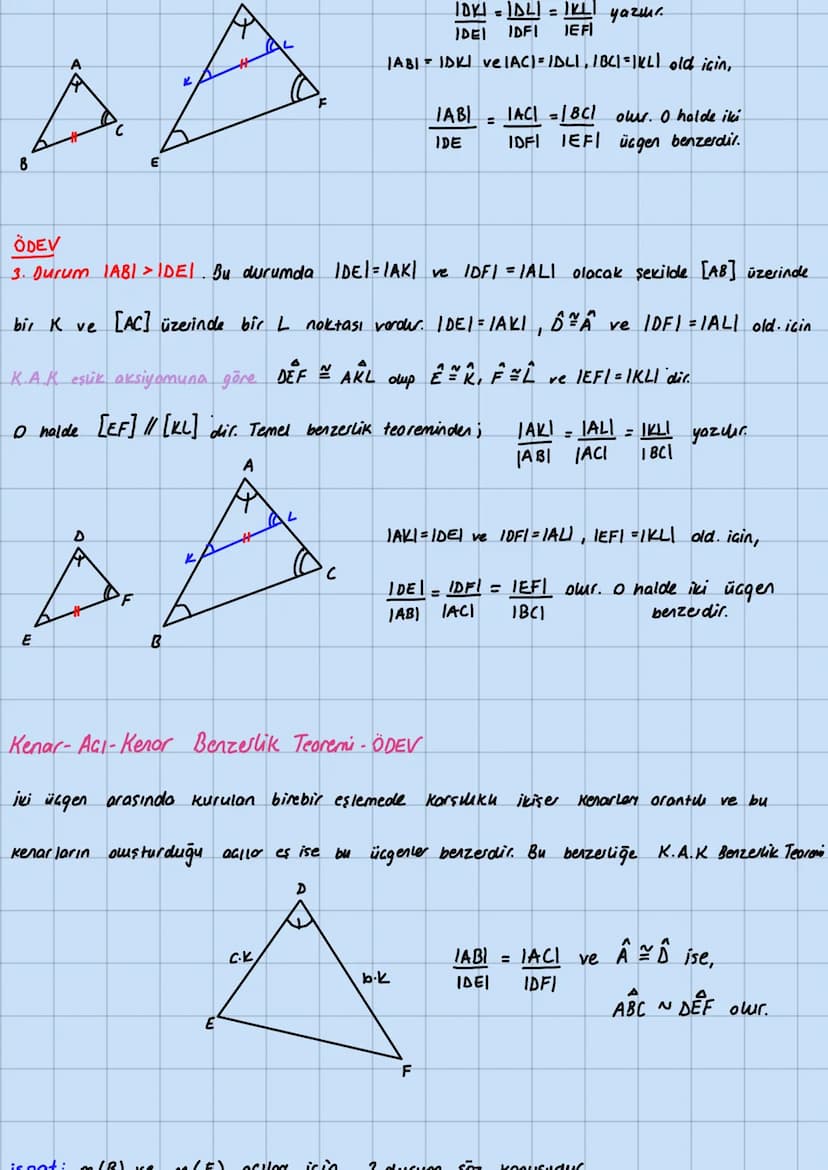 |DK| / |DE| = |DL| / |DF| = |KL| / |EF| yazılır.
|AB| = |DK| ve |AC| = |DL|, |BC| = |KL| old için,
|AB| / |DE = |AC| / |DF| = |BC| / |EF| olur. O halde iki
üçgen benzerdir.
A
B
C
K
L
E
F
ÖDEV
3. Durum |AB| > |DE|. Bu durumda |DE| = |AK| ve |DF| = |AL| olacak şekilde [AB] üzerinde
bir K ve [AC] üzerinde bir L noktası vardır. |DE| = |AK|, D̂ ≅ Â ve |DF| = |AL| old. için
K.A.K eşlik aksiyomuna göre DEF ≅ AKL olup Ê ≅ K̂, F̂ ≅ L̂ ve |EF| = |KL| 'dir.
O halde [EF] // [KL] 'dir. Temel benzerlik teoreminden; |AK| / |AB| = |AL| / |AC| = |KL| / |BC| yazılır.
D
E
F
A
K
L
B
C
|AK| = |DE| ve |DF| = |AL|, |EF| = |KL| old. için,
|DE| / |AB| = |DF| / |AC| = |EF| / |BC| olur. O halde iki üçgen
benzerdir.
Kenar-Açı-Kenar Benzerlik Teoremi - ÖDEV
iki üçgen arasında kurulan birebir eşlemede karşılıklı ikişer kenarları orantılı ve bu
kenarların oluşturduğu açılar eş ise bu üçgenler benzerdir. Bu benzerliğe K.A.K Benzerlik Teoremi
D
c.k
b.k
E
F
|AB| / |DE| = |AC| / |DF| ve Â ≅ D̂ ise,
ABC ~ DEF olur.
ispat: m(B) ve m(E) açıları için 3 durum söz konusudur.